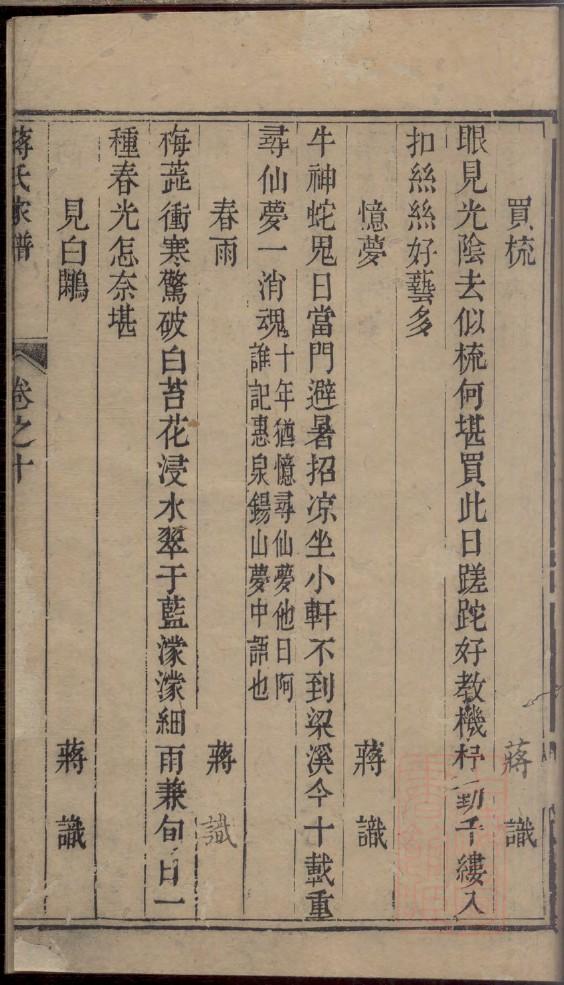 買梳 蔣識
眼見光陰去似梳何堪買此日蹉跎好教機杼勤千縷入
扣絲絲好藝多
憶夢 蔣識
牛神蛇鬼日當門避暑招凉坐小軒不到梁溪今十載重
尋仙夢一消魂十年猶憶尋仙夢他日阿
誰記惠泉錫山夢中語也
春雨 蔣識
梅蕋衝寒驚破白苔花浸水翠于藍濛濛細雨兼旬日一
種春光怎奈堪
見白鷴 蔣識
蔣氏家譜 卷之十